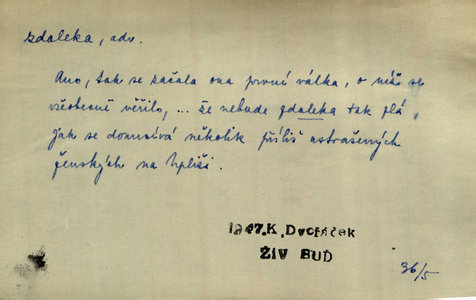 zdaleka, adv.
Ano, tak se začala ona první válka, o níž se
všeobecně věřilo, ... že nebude zdaleka tak zlá,
jak se domnívá několik příliš ustrašených
ženských na Spliši.
1947.K. Dvořáček
ŽIV BUD
36/5